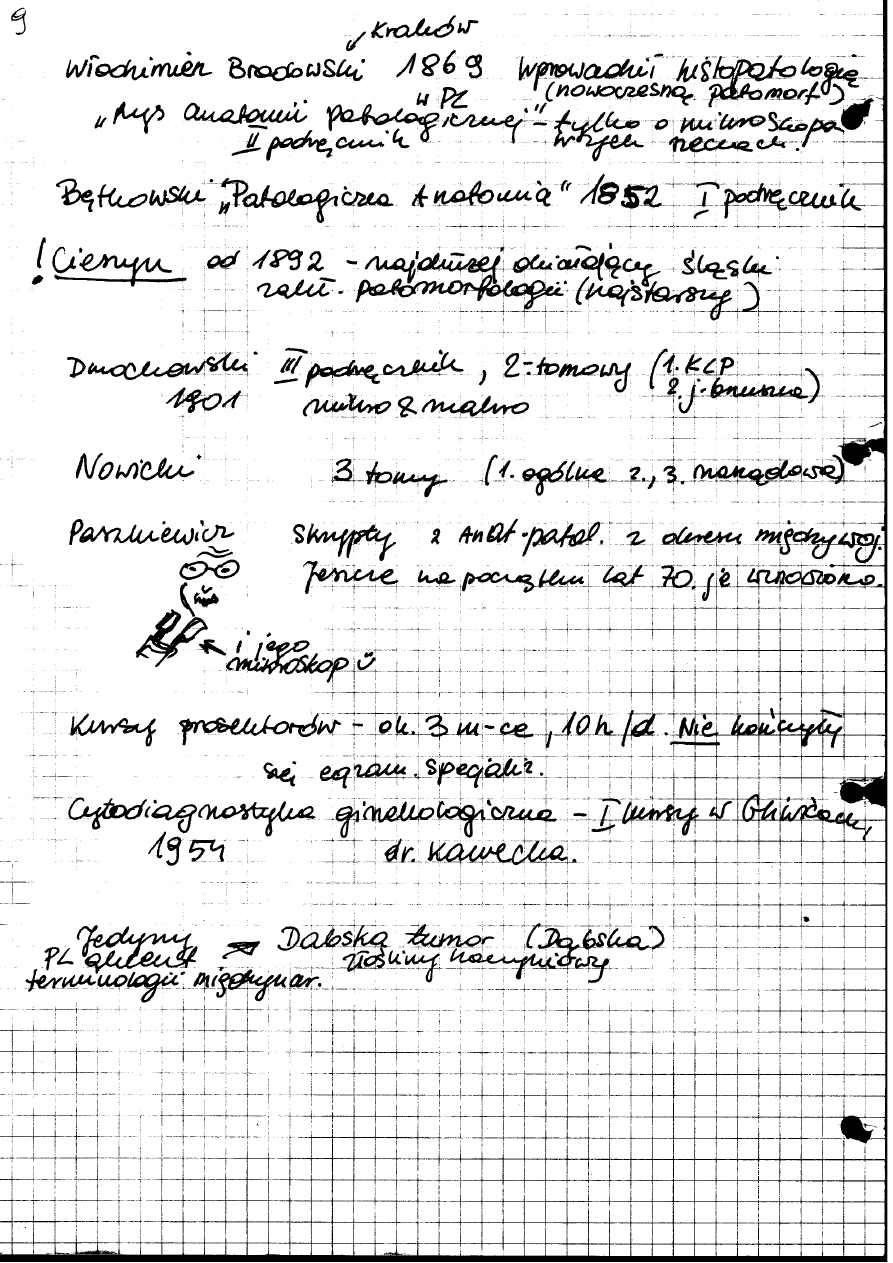 9
Kraków
Włodzimierz Brodowski 1869 wprowadził histopatologię
w PL (nowoczesną patomorf.)
„Rys anatomii patologicznej" – tylko o mikroskopo
II podręcznik wych rzeczach.
Bętkowski „Patologiczna Anatomia" 1852 I podręcznik
! Cieszyn od 1892 – najdłużej działający śląski
zakł. patomorfologii (najstarszy)
Dmochowski III podręcznik, 2-tomowy (1. KLP
1901 mikro & makro 2. j. brzuszna)
Nowicki 3 tomy (1. ogólne 2., 3. narządowe)
Paszkiewicz Skrypty z Anat. patol. z okresu międzywoj.
Jeszcze na początku lat 70. je wznowiono.
i jego
mikroskop
Kursy prosektorów – ok. 3 m-ce, 10h/d. Nie kończyły
się egzam. specjaliz.
Cytodiagnostyka ginekologiczna – I kursy w Gliwicach,
1954 dr. Kawecka.
Jedyny Dabska tumor (Dąbska)
PL akcent złośliwy naczyniowy
terminologii międzynar.